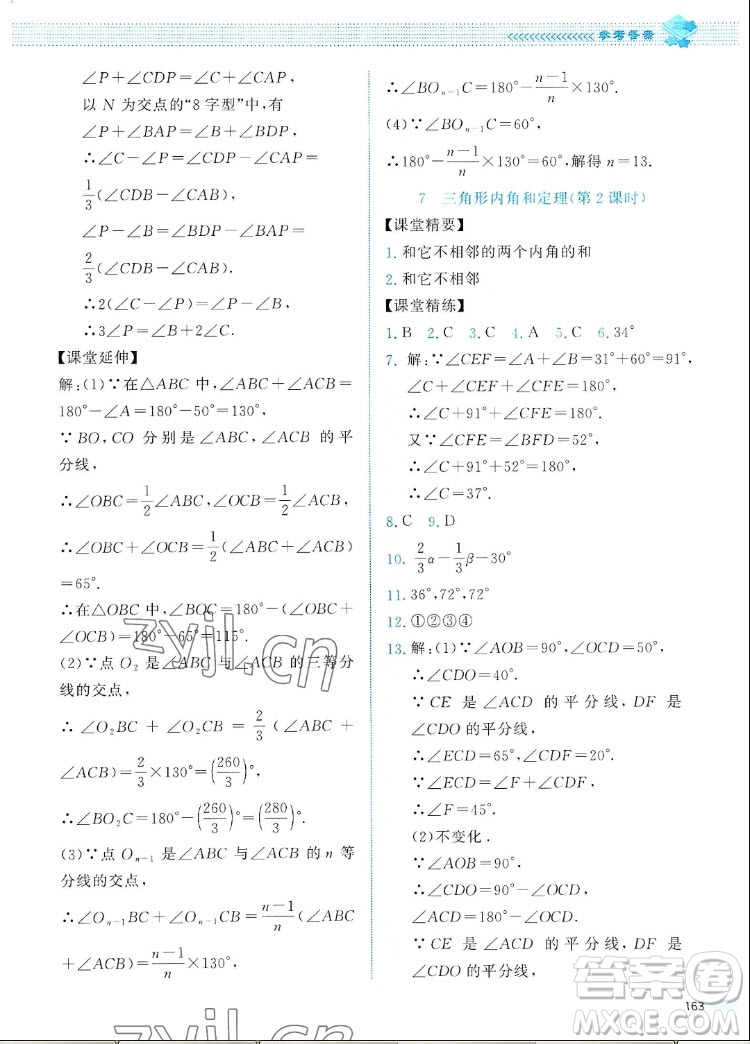 参考答案
∠P＋∠CDP＝∠C＋∠CAP，
以 N 为交点的“8 字型”中，有
∠P＋∠BAP＝∠B＋∠BDP，
∴∠C－∠P＝∠CDP－∠CAP＝
1/3(∠CDB－∠CAB)，
∠P－∠B＝∠BDP－∠BAP＝
2/3(∠CDB－∠CAB).
∴2(∠C－∠P)＝∠P－∠B，
∴3∠P＝∠B＋2∠C.
【课堂延伸】
解：(1)∵在△ABC 中，∠ABC＋∠ACB＝
180°－∠A＝180°－50°＝130°，
∵BO，CO 分别是∠ABC，∠ACB 的平
分线，
∴∠OBC＝1/2∠ABC，∠OCB＝1/2∠ACB，
∴∠OBC＋∠OCB＝1/2(∠ABC＋∠ACB)
＝65°.
∴在△OBC 中，∠BOC＝180°－(∠OBC＋
∠OCB)＝180°－65°＝115°.
(2)∵点 O₂ 是∠ABC 与∠ACB 的三等分
线的交点，
∴∠O₂BC＋∠O₂CB＝2/3(∠ABC＋
∠ACB)＝2/3×130°＝(260/3)°，
∴∠BO₂C＝180°－(260/3)°＝(280/3)°.
(3)∵点 Oₙ₋₁ 是∠ABC 与∠ACB 的 n 等
分线的交点，
∴∠Oₙ₋₁BC＋∠Oₙ₋₁CB＝(n－1)/n(∠ABC
＋∠ACB)＝(n－1)/n×130°，
∴∠BOₙ₋₁C＝180°－(n－1)/n×130°.
(4)∵∠BOₙ₋₁C＝60°，
∴180°－(n－1)/n×130°＝60°，解得 n＝13.
7 三角形内角和定理(第 2 课时)
【课堂精要】
1. 和它不相邻的两个内角的和
2. 和它不相邻
【课堂精练】
1. B 2. C 3. C 4. A 5. C 6. 34°
7. 解：∵∠CEF＝∠A＋∠B＝31°＋60°＝91°，
∠C＋∠CEF＋∠CFE＝180°，
∴∠C＋91°＋∠CFE＝180°.
又∵∠CFE＝∠BFD＝52°，
∴∠C＋91°＋52°＝180°，
∴∠C＝37°.
8. C 9. D
10. 2/3α－1/3β－30°
11. 36°，72°，72°
12. ①②③④
13. 解：(1)∵∠AOB＝90°，∠OCD＝50°，
∴∠CDO＝40°.
∵CE 是∠ACD 的平分线，DF 是
∠CDO 的平分线，
∴∠ECD＝65°，∠CDF＝20°.
∵∠ECD＝∠F＋∠CDF，
∴∠F＝45°.
(2)不变化.
∵∠AOB＝90°，
∴∠CDO＝90°－∠OCD，
∠ACD＝180°－∠OCD.
∵CE 是∠ACD 的平分线，DF 是
∠CDO 的平分线，
163
zyjl.cn
zyjl.cn
答案圈
MXQE.COM